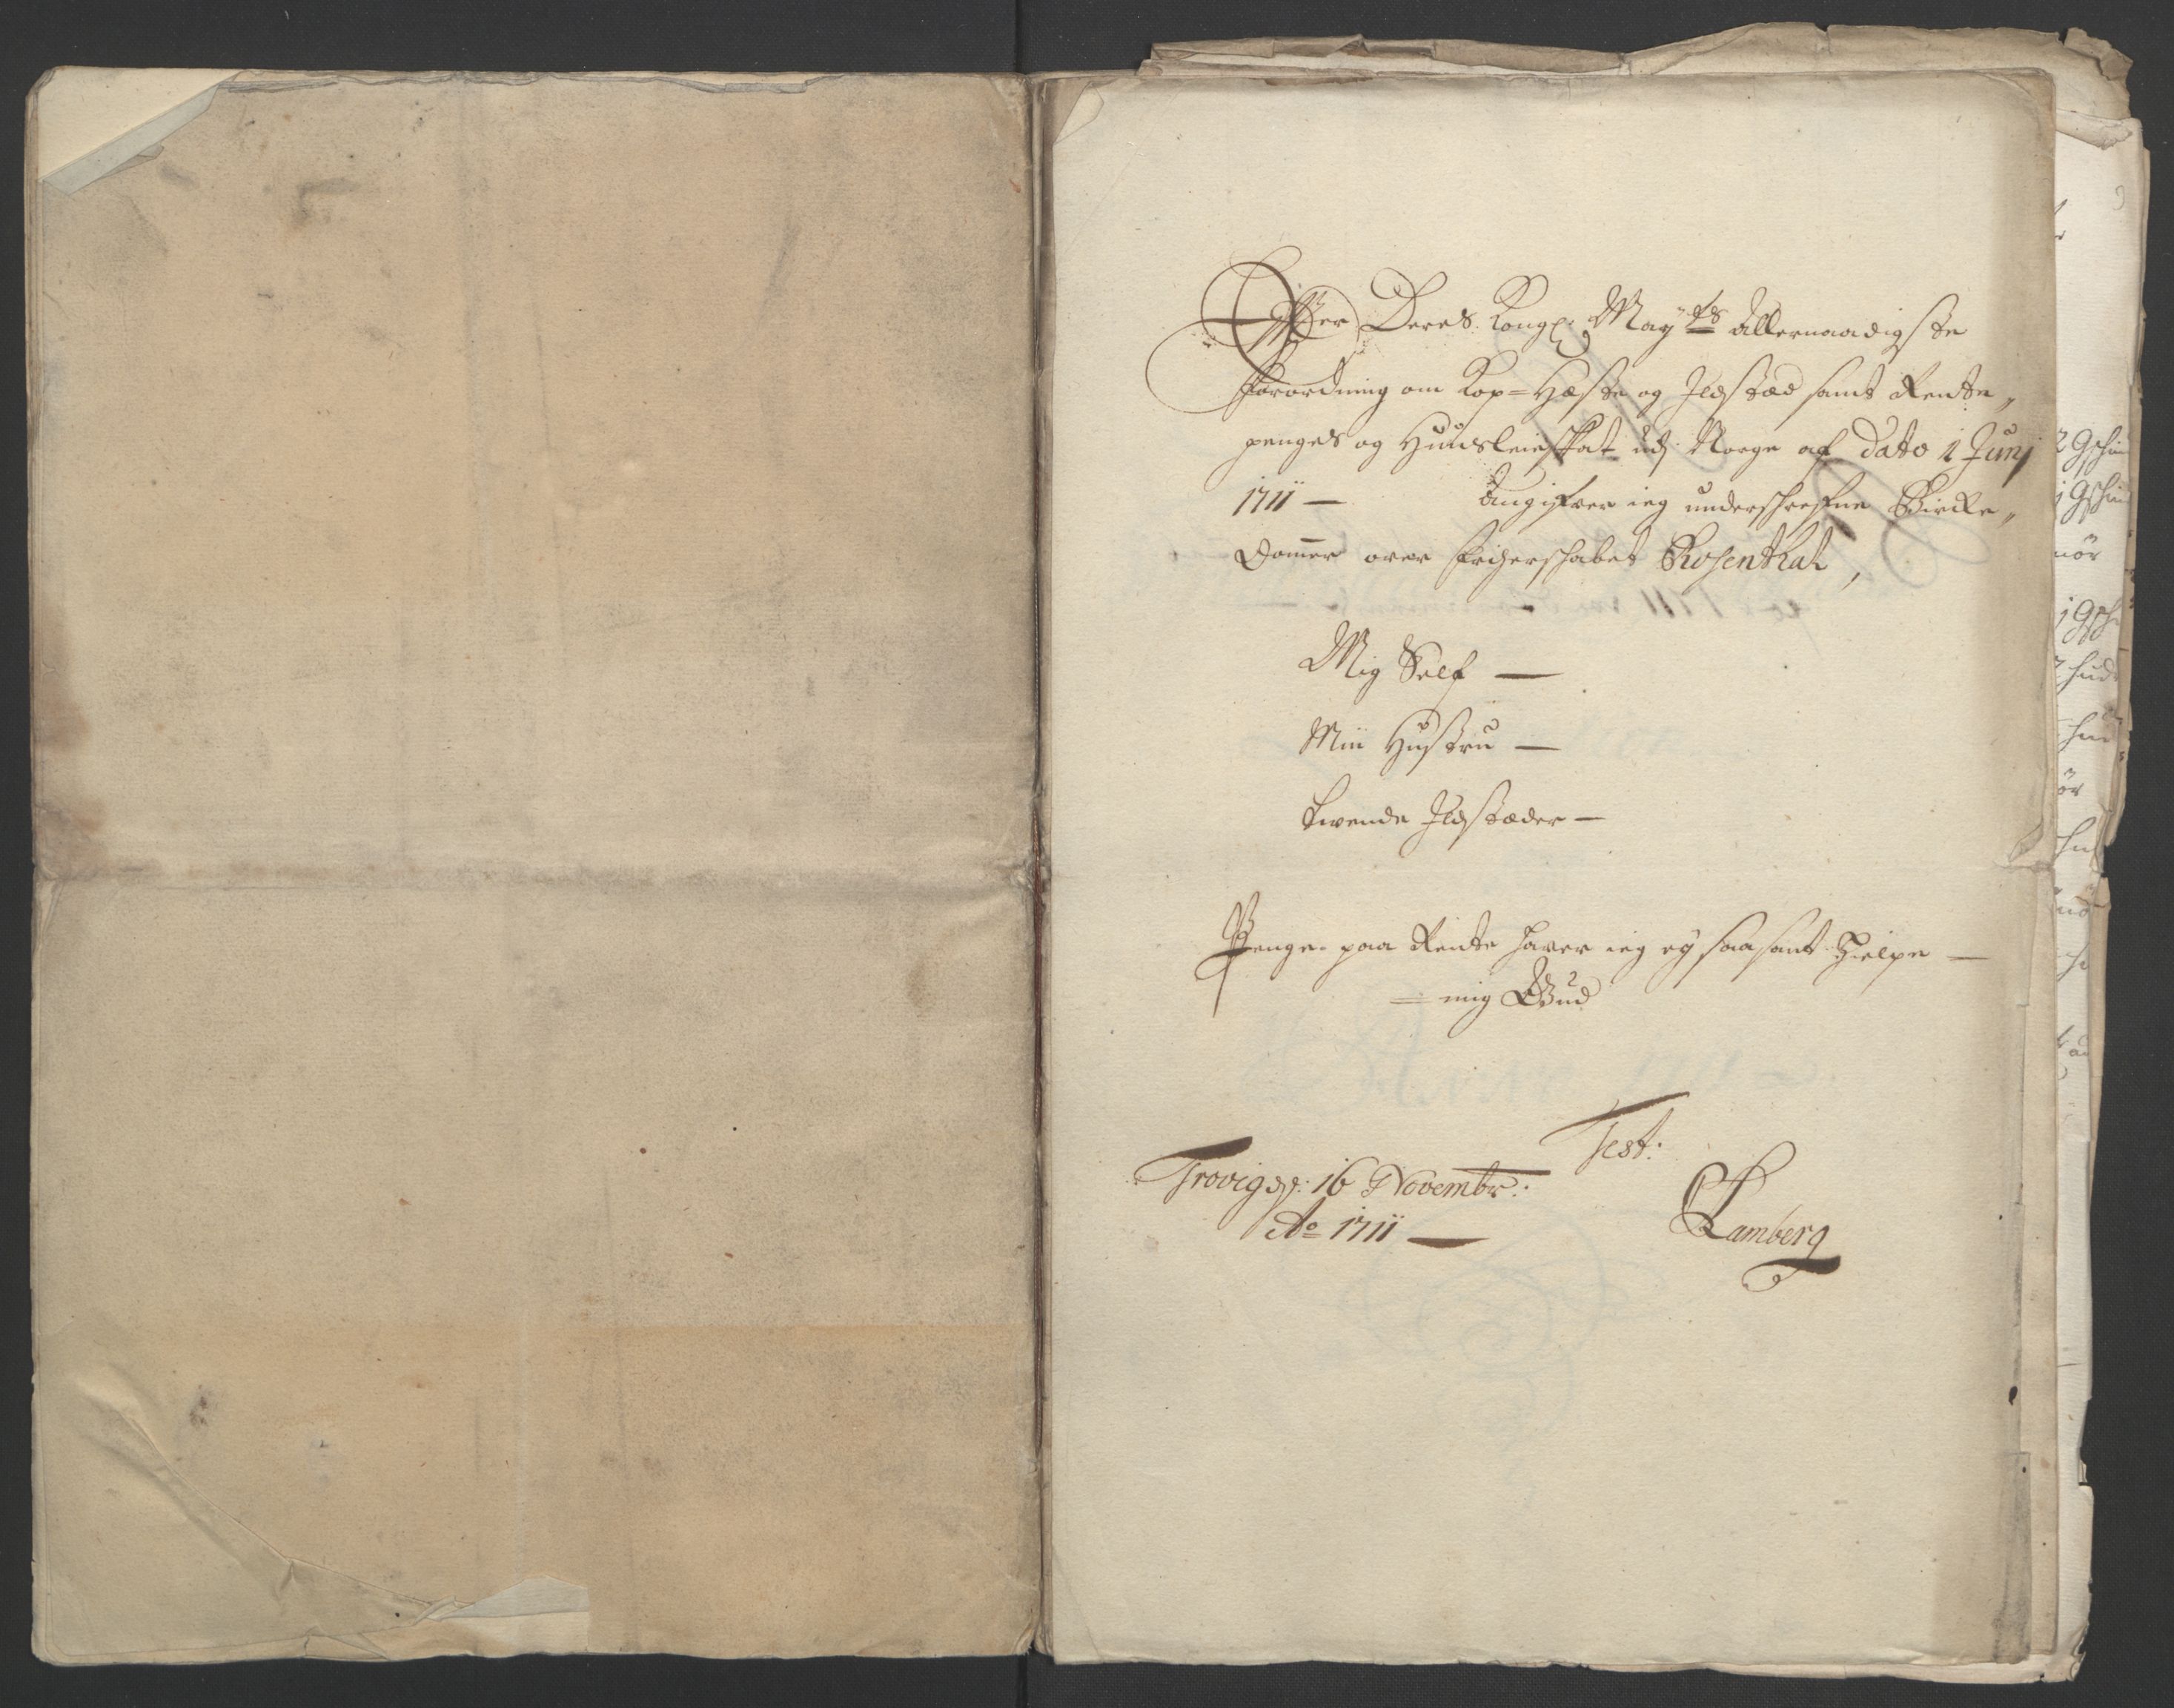 Efter Deres Kongl: May:ts allernaadigste
forordning om Kop=Hæste og Ildstæd samt Rente„
penges og Huusleie skat udj Norge af dato 1 Junj
1711 — angifver ieg underschrefne Bircke„
dommer over friherschabet Rosenthal,
Mig Self —
Min Hustru —
tvende Ildstæder —
Penge paa Rente haver ieg ey saa sant hielpe —
= mig Gud
Test:
16 Novembr:
Ao 1711 —
Lamberg